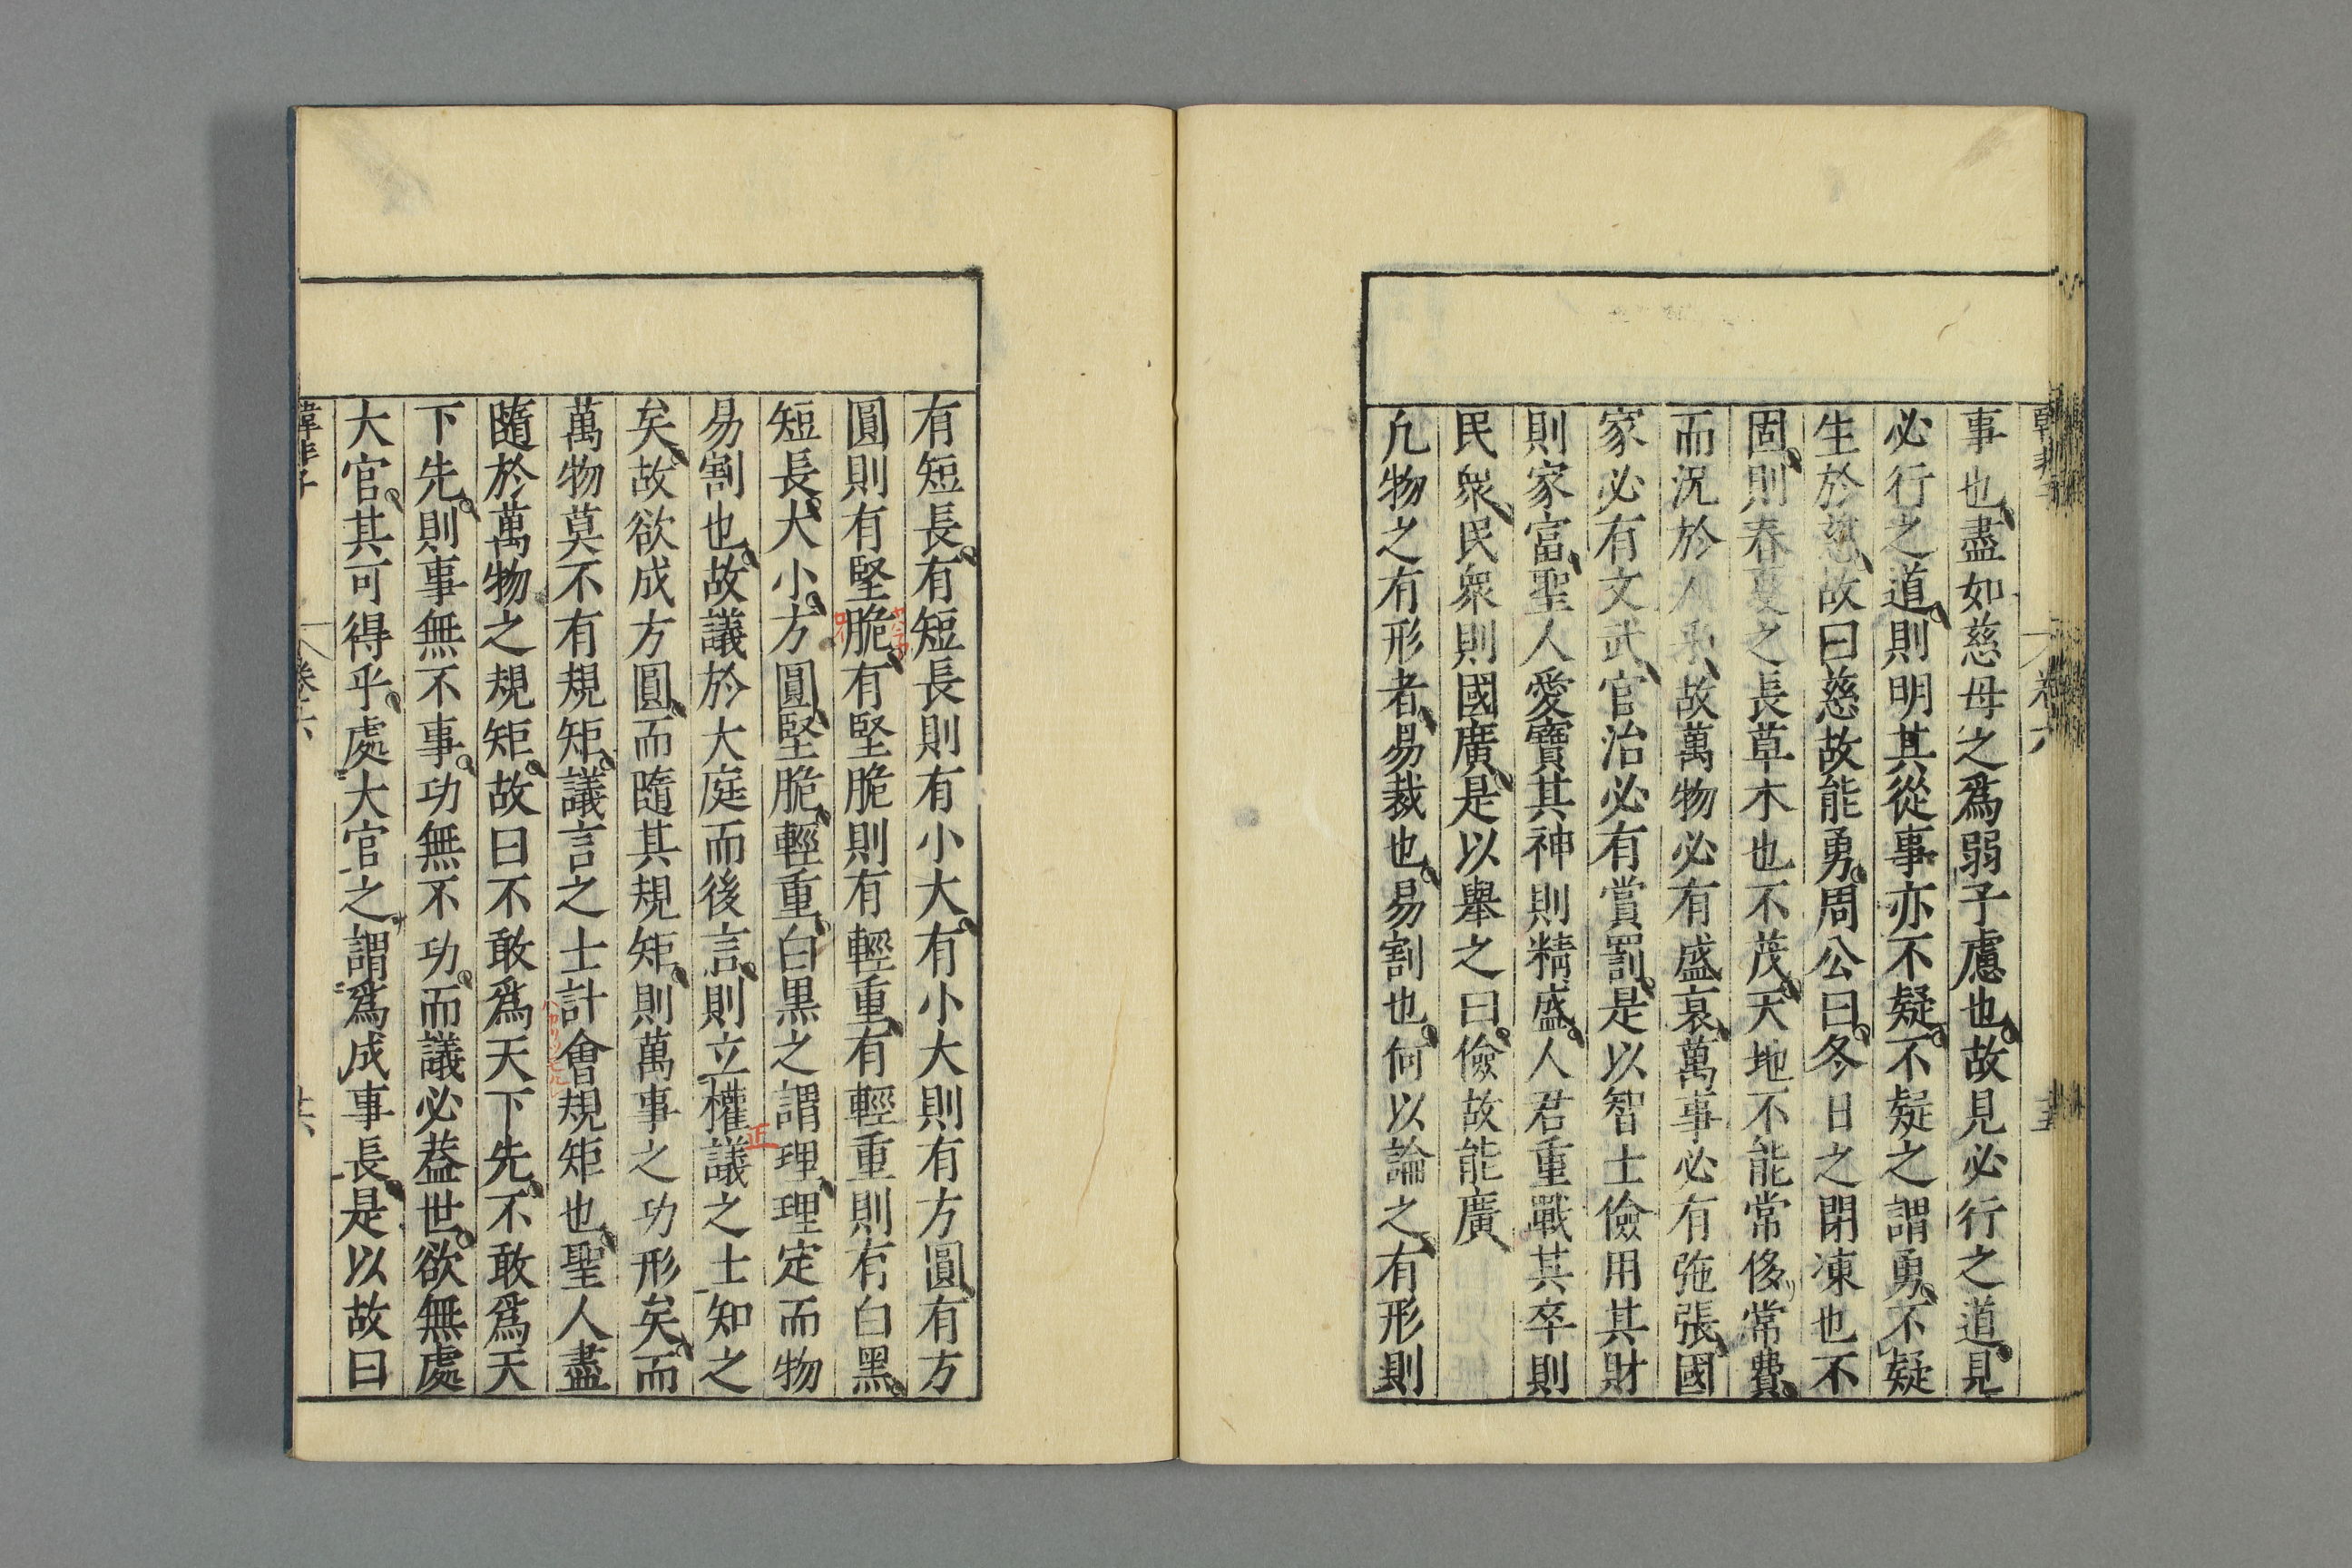 事也盡如慈母之爲弱子慮也故見必行之道見
必行之道則明其從事亦不疑不疑之謂勇不疑
生於慈故曰慈故能勇周公曰冬日之閉凍也不
固則春夏之長草木也不茂天地不能常侈常費
而況於人乎故萬物必有盛衰萬事必有弛張國
家必有文武官治必有賞罰是以智士儉用其財
則家富聖人愛寶其神則精盛人君重戰其卒則
民衆民衆則國廣是以舉之曰儉故能廣
凢物之有形者易裁也易割也何以論之有形則
有短長有短長則有小大有小大則有方圓有方
圓則有堅脆有堅脆則有輕重有輕重則有白黑
短長大小方圓堅脆輕重白黒之謂理理定而物
易割也故議於大庭而後言則立權議之士知之
正
矣故欲成方圓而隨其規矩則萬事之功形矣而
萬物莫不有規矩議言之士計會規矩也聖人盡
隨於萬物之規矩故曰不敢爲天下先不敢爲天
下先則事無不事功無不功而議必葢世欲無處
大官其可得乎處大官之謂爲成事長是以故曰
韓非子 卷六